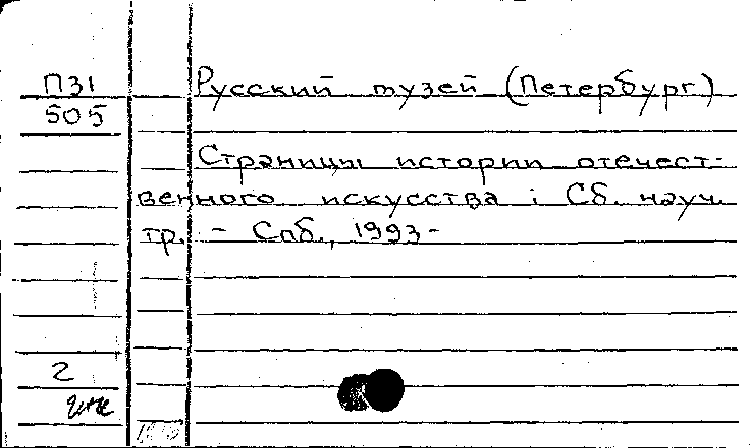 П31 Русский музей (Петербург)
505
Страницы истории отечест-
венного искусства : Сб. науч.
тр. - Спб., 1993-
2